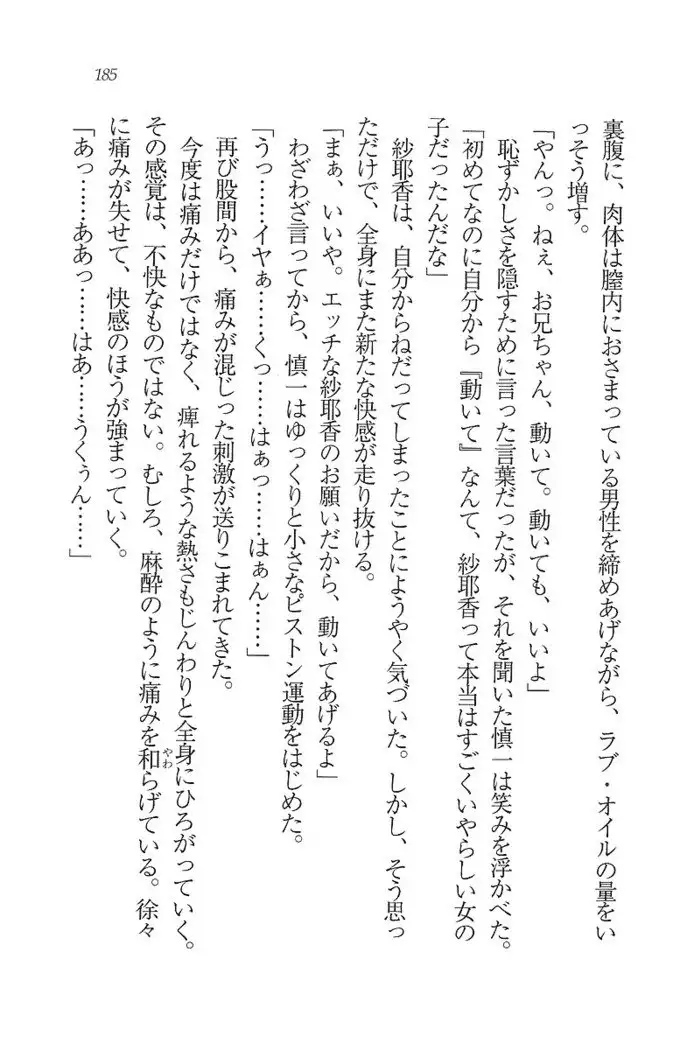 185
裏腹に、肉体は膣内におさまっている男性を締めあげながら、ラブ・オイルの量をい
っそう増す。
「やんっ。ねぇ、お兄ちゃん、動いて。動いても、いいよ」
恥ずかしさを隠すために言った言葉だったが、それを聞いた慎一は笑みを浮かべた。
「初めてなのに自分から『動いて』なんて、紗耶香って本当はすごくいやらしい女の
子だったんだな」
紗耶香は、自分からねだってしまったことにようやく気づいた。しかし、そう思っ
ただけで、全身にまた新たな快感が走り抜ける。
「まぁ、いいや。エッチな紗耶香のお願いだから、動いてあげるよ」
わざわざ言ってから、慎一はゆっくりと小さなピストン運動をはじめた。
「うっ……イヤぁ……くっ……はぁっ……はぁん……」
再び股間から、痛みが混じった刺激が送りこまれてきた。
今度は痛みだけではなく、痺れるような熱さもじんわりと全身にひろがっていく。
その感覚は、不快なものではない。むしろ、麻酔のように痛みを和らげている。徐々
に痛みが失せて、快感のほうが強まっていく。
「あっ……ああっ……はあ……うくぅん……」